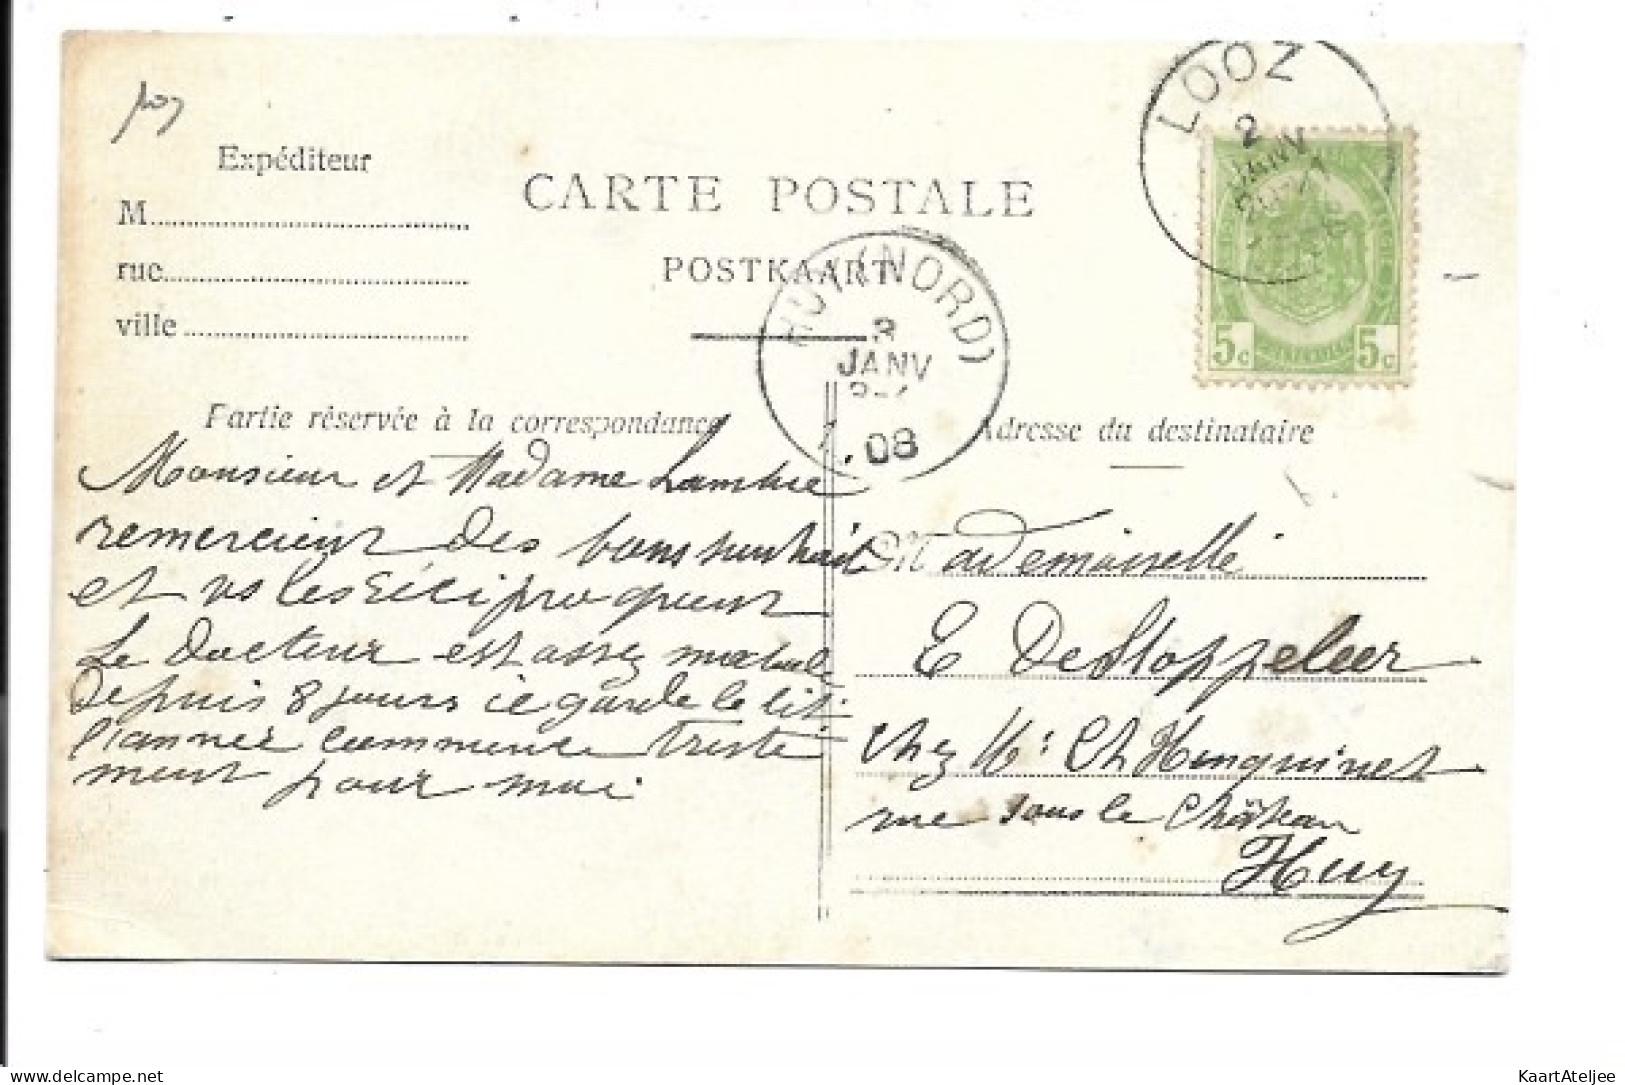 Expéditeur
M
rue
ville
CARTE POSTALE
POSTKAART
LOOZ
2
JANV
HUY (NORD)
3
JANV
08
5c 5c
Partie réservée à la correspondance
Adresse du destinataire
Monsieur et Madame Lambrie
remercient des bons souhait
et vs les réciproquent
Le docteur est assez malade
depuis 8 jours il garde le lit
l'année commence triste
ment pour moi
Mademoiselle
E DeStoppeleer
chez Mr Ch Hunguinet
rue sous le Château
Huy
delcampe.net
KaartAteljee